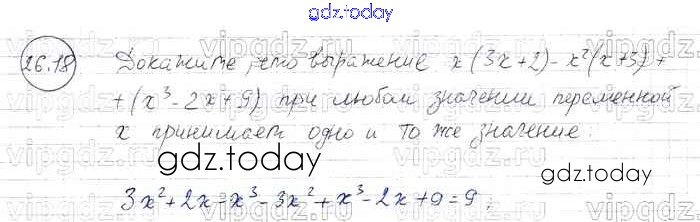 gdz.today
26.18 Докажите, что выражение x(3x+2)-x²(x+3)+
+(x³-2x+9) при любом значении переменной
x принимает одно и то же значение:
gdz.today
gdz.today
3x²+2x-x³-3x²+x³-2x+9=9.